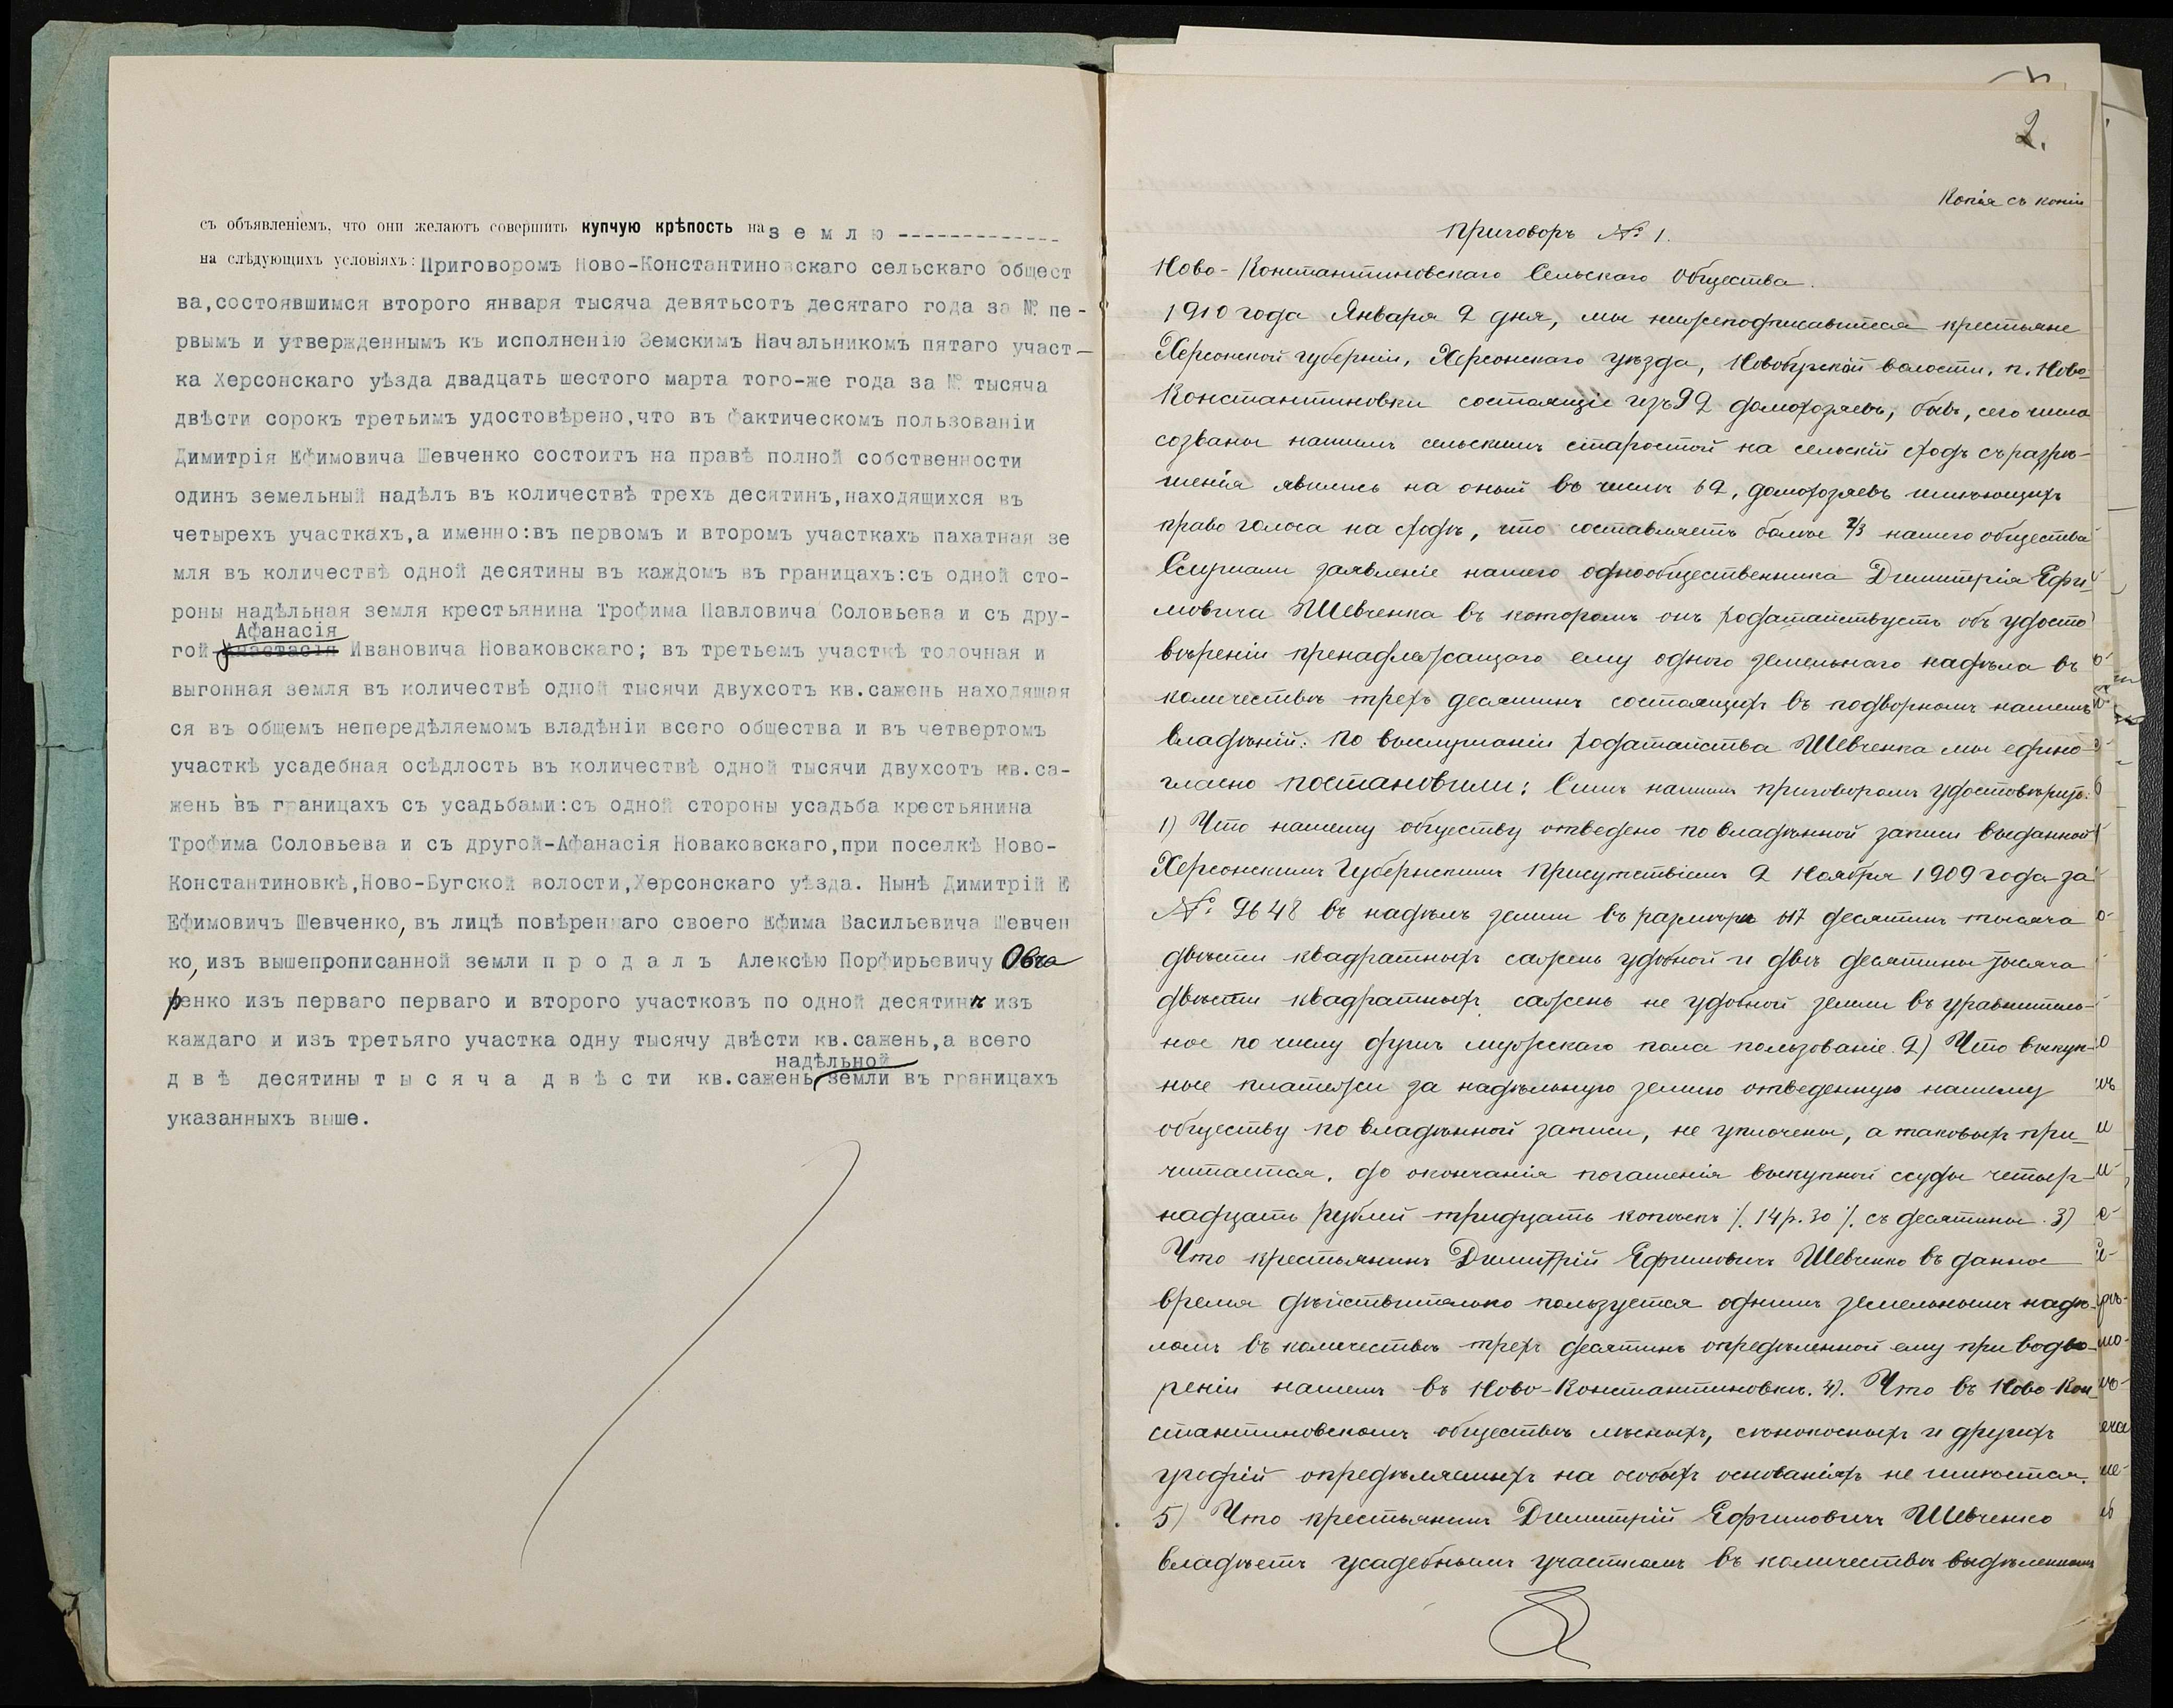 съ объявленіемъ, что они желаютъ совершить купчую крѣпость на з е м л ю -------------
на слѣдующихъ условіяхъ: Приговоромъ Ново-Константиновскаго сельскаго общест
ва,состоявшимся второго января тысяча девятьсотъ десятаго года за № пе-
рвымъ и утвержденнымъ къ исполненію Земскимъ Начальникомъ пятаго участ-
ка Херсонскаго уѣзда двадцать шестого марта того-же года за № тысяча
двѣсти сорокъ третьимъ удостовѣрено,что въ фактическомъ пользованіи
Димитрія Ефимовича Шевченко состоитъ на правѣ полной собственности
одинъ земельный надѣлъ въ количествѣ трехъ десятинъ,находящихся въ
четырехъ участкахъ,а именно:въ первомъ и второмъ участкахъ пахатная зе
мля въ количествѣ одной десятины въ каждомъ въ границахъ:съ одной сто-
роны надѣльная земля крестьянина Трофима Павловича Соловьева и съ дру-
Афанасія
гой Анастасія Ивановича Новаковскаго; въ третьемъ участкѣ толочная и
выгонная земля въ количествѣ одной тысячи двухсотъ кв.сажень находящая
ся въ общемъ непередѣляемомъ владѣніи всего общества и въ четвертомъ
участкѣ усадебная осѣдлость въ количествѣ одной тысячи двухсотъ кв.са-
жень въ границахъ съ усадьбами:съ одной стороны усадьба крестьянина
Трофима Соловьева и съ другой-Афанасія Новаковскаго,при поселкѣ Ново-
Константиновкѣ,Ново-Бугской волости,Херсонскаго уѣзда. Нынѣ Димитрій Е
Ефимовичъ Шевченко, въ лицѣ повѣреннаго своего Ефима Васильевича Шевчен
ко, изъ вышепрописанной земли п р о д а л ъ Алексѣю Порфирьевичу Овча
ренко изъ перваго перваго и второго участковъ по одной десятинѣ изъ
каждаго и изъ третьяго участка одну тысячу двѣсти кв.сажень,а всего
надѣльной
д в ѣ десятины т ы с я ч а д в ѣ с ти кв.сажень земли въ границахъ
указанныхъ выше.
2.
Копія съ копіи
Приговоръ № 1.
Ново-Константиновскаго Сельскаго Общества.
1910 года Января 2 дня, мы нижеподписавшіеся крестьяне
Херсонской губерніи, Херсонскаго уѣзда, Новобугской волости, п. Ново-
Константиновки состоящіе изъ 92 домохозяевъ, бывъ, сего числа
созваны нашимъ сельскимъ старостой на сельскій сходъ съ разрѣ-
шенія явились на оный въ числѣ 62, домохозяевъ имѣющихъ
право голоса на сходѣ, что составляетъ болѣе 2/3 нашего общества
Слушали заявленіе нашего однообщественника Димитрія Ефи-
мовича Шевченка въ которомъ онъ ходатайствуетъ объ удосто
вѣреніи пренадлежащаго ему одного земельнаго надѣла въ
количествѣ трехъ десятинъ состоящихъ въ подворномъ нашемъ
владѣній: По выслушаніи ходатайства Шевченка мы едино-
гласно постановили: Симъ нашимъ приговоромъ удостовѣрить:
1) Что нашему обществу отведено по владѣнной записи выданной
Херсонскимъ Губернскимъ Присутствіемъ 2 Ноября 1909 года за
№ 9648 въ надѣлъ земли въ размѣрѣ 617 десятинъ тысяча
двѣсти квадратныхъ сажень удобной и двѣ десятины тысяча
двѣсти квадратныхъ сажень не удобной земли въ уравнитель-
ное по числу душъ мужескаго пола пользованіе. 2) Что выкуп-
ные платежи за надѣльную землю отведенную нашему
обществу по владѣнной записи, не уплочены, а таковыхъ при-
читается, до окончанія погашенія выкупной ссуды четыр-
надцать рублей тридцать копѣекъ /. 14р. 30 /. съ десятины. 3)
Что крестьянинъ Димитрій Ефимовичъ Шевченко въ данное
время дѣйствительно пользуется однимъ земельнымъ надѣ-
ломъ въ количествѣ трехъ десятинъ опредѣленной ему при водво-
реніи нашемъ въ Ново-Константиновкѣ. 4). Что въ Ново Кон-
стантиновскомъ обществѣ лѣсныхъ, сѣнокосныхъ и другихъ
угодій опредѣляемыхъ на особыхъ основаніяхъ не имѣется.
5) Что крестьянинъ Димитрій Ефимовичъ Шевченко
владѣетъ усадебнымъ участкомъ въ количествѣ выдѣленнымъ